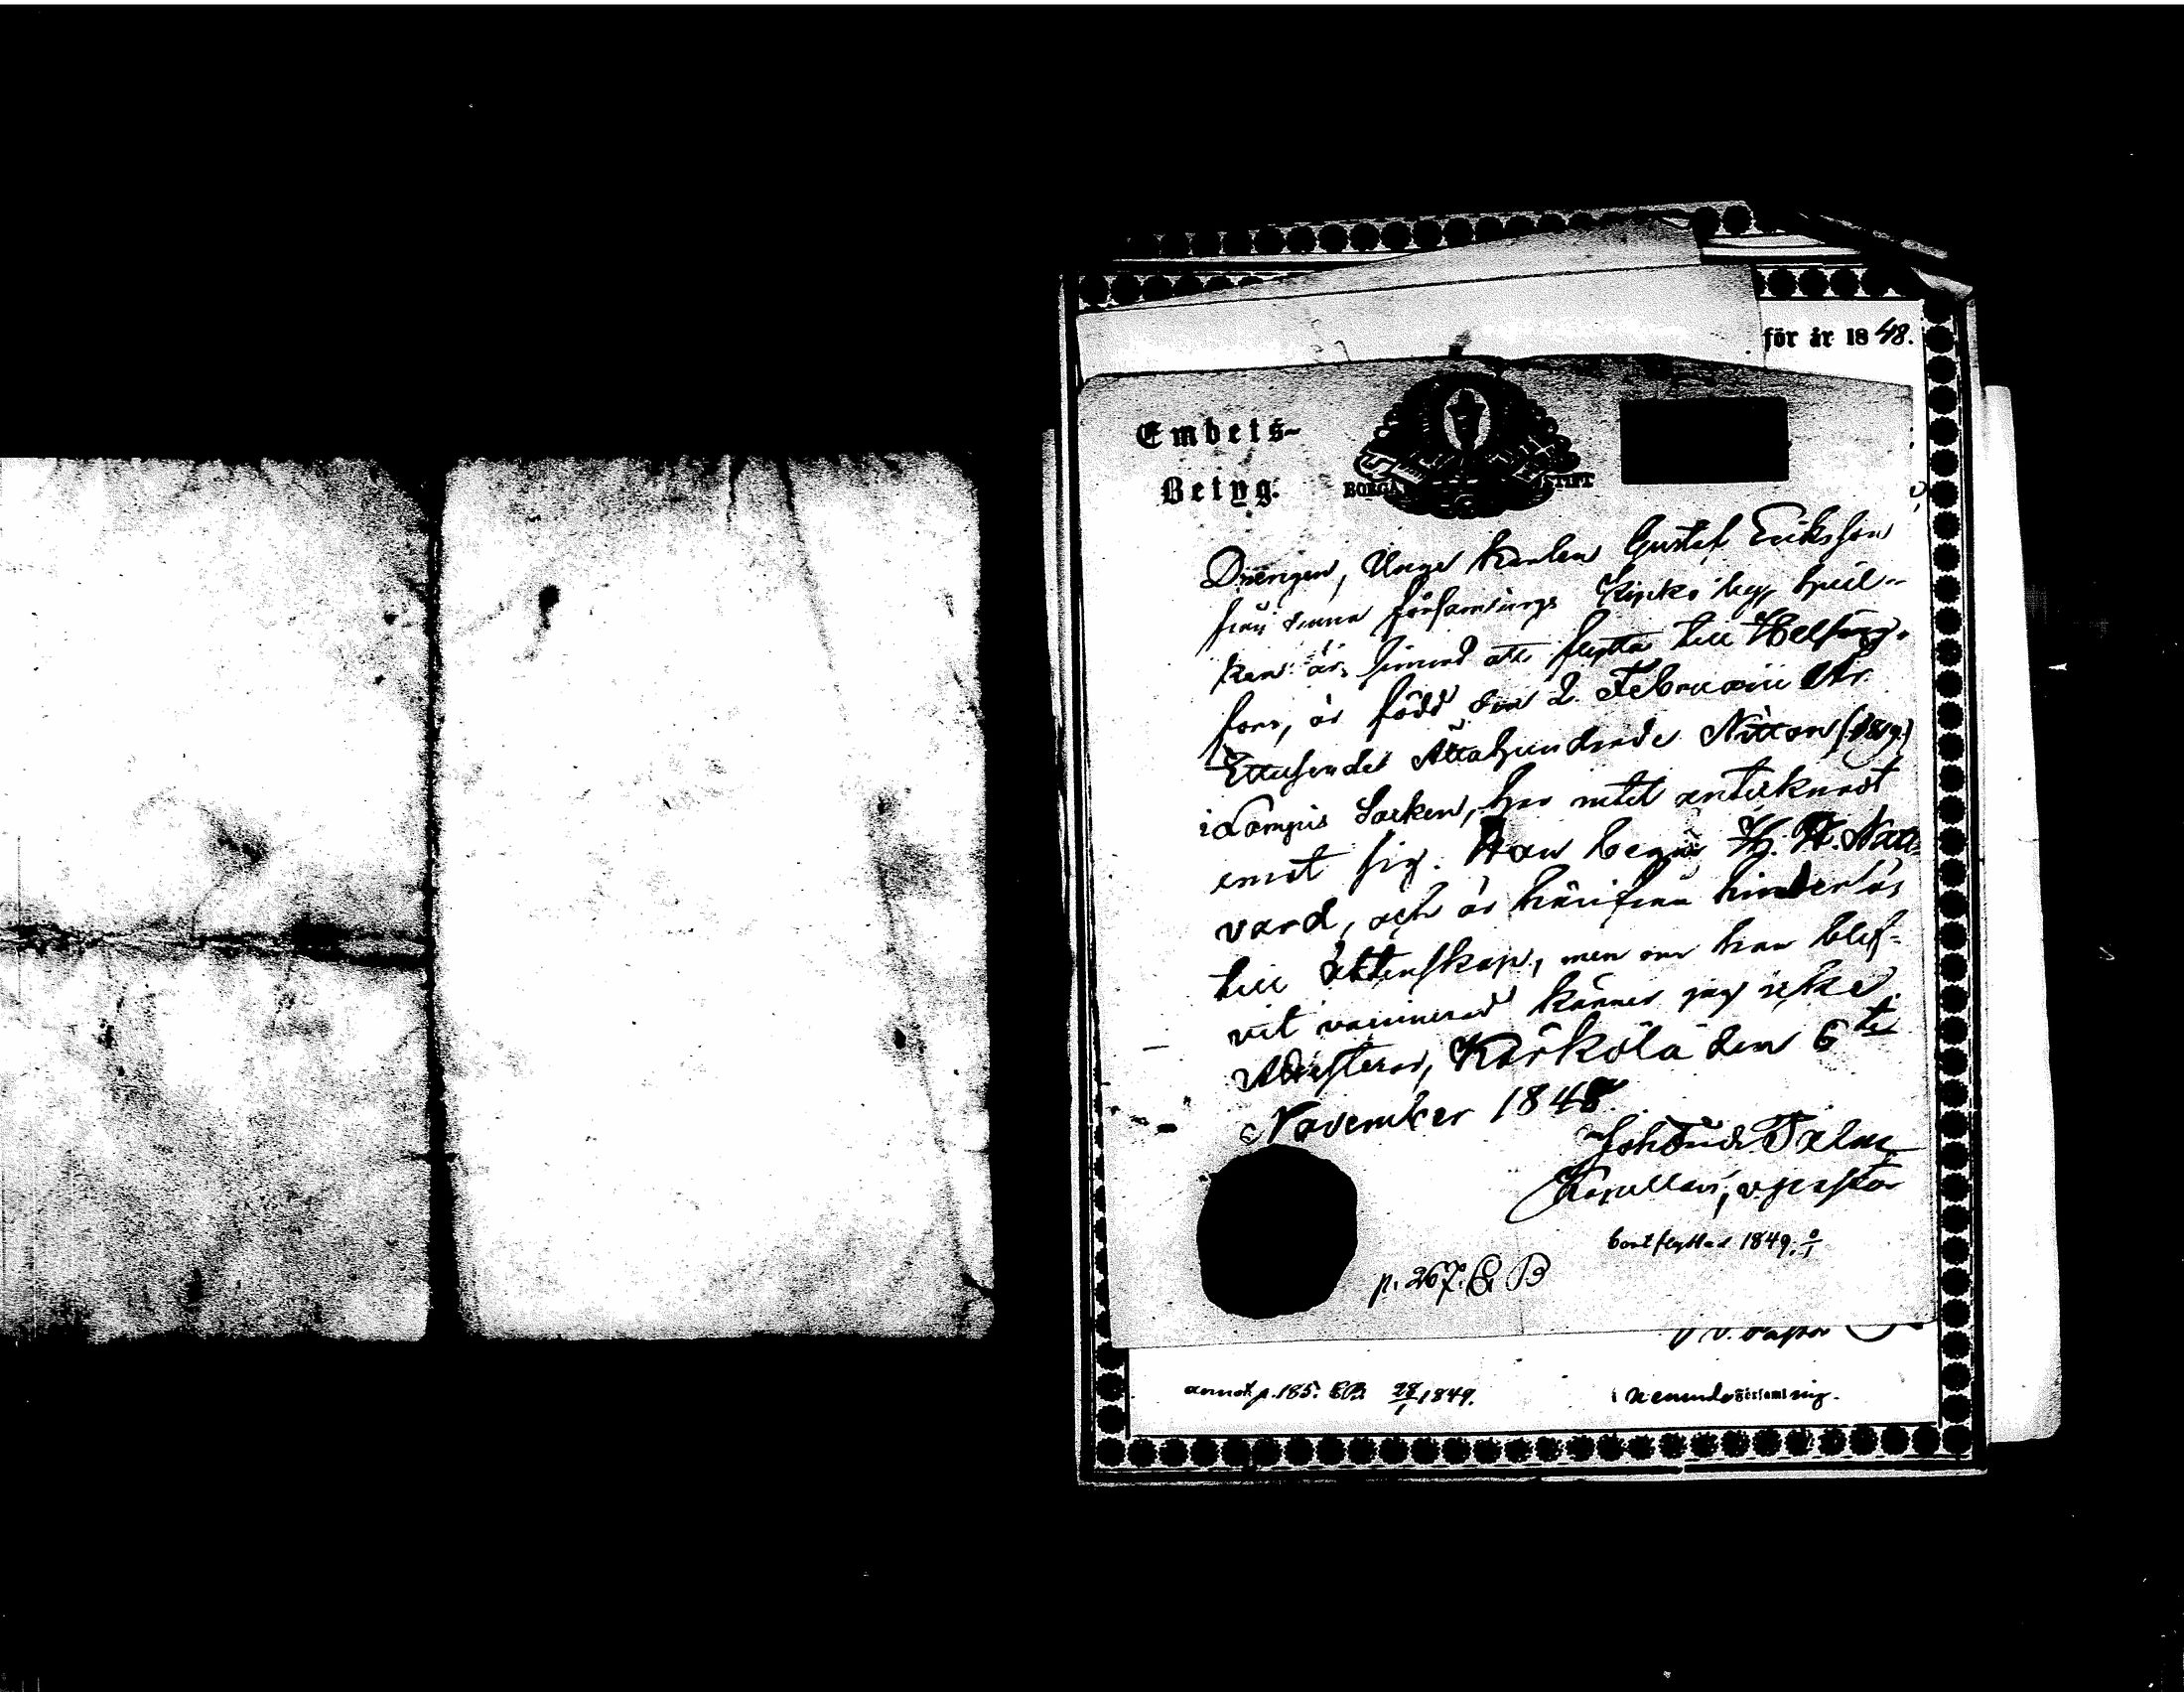 för år 1848.
Embets-
Betyg.
BORGÅ STIFT
Drengen, Unge Karlen Gustaf Eriksson
från denna församlings Kyrko by, hvil-
ken är sinnad att flytta till Helsing-
fors, är född den 2 Februarii År
Ettusende Åttahundrade Nitton (1819)
i Lampis Socken, har intet antecknadt
emot sig. Han begår H. H. Natt
vard, och är härifrån hinderlös
till Äktenskap, men om han blif-
vit vaccinerad känner jag icke
Attesterar, Kärkölä den 6te
November 1848.
Joh Palm
Kapellan, v. pastor
bortflyttad 1849.
p. 267. C. B
v. Pastor
annot p. 185. CB. 28/1 1849.
i församling.